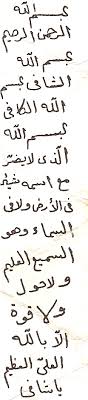 بسم الله
الرحمن الرحيم
بسم الله
الشافى بسم
الله الكافى
بسم الله
الذى لا يضر
مع اسمه شئ
فى الأرض ولا فى
السماء وهو
السميع العليم
ولا حول
ولا قوة
الا بالله
العلى العظيم
يا شافى